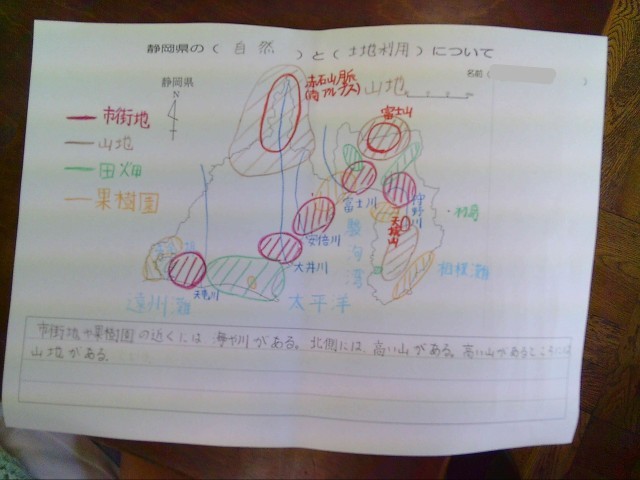 静岡県の（ 自然 ）と（ 土地利用 ）について
静岡県
名前（ ）
N
市街地
山地
田畑
果樹園
赤石山脈
(南アルプス)
山地
富士山
富士川
狩野川
安倍川
天城山
駿河湾
大井川
相模灘
天竜川
遠川灘
太平洋
市街地や果樹園の近くには海や川がある。北側には、高い山がある。高い山があるところには
山地がある。